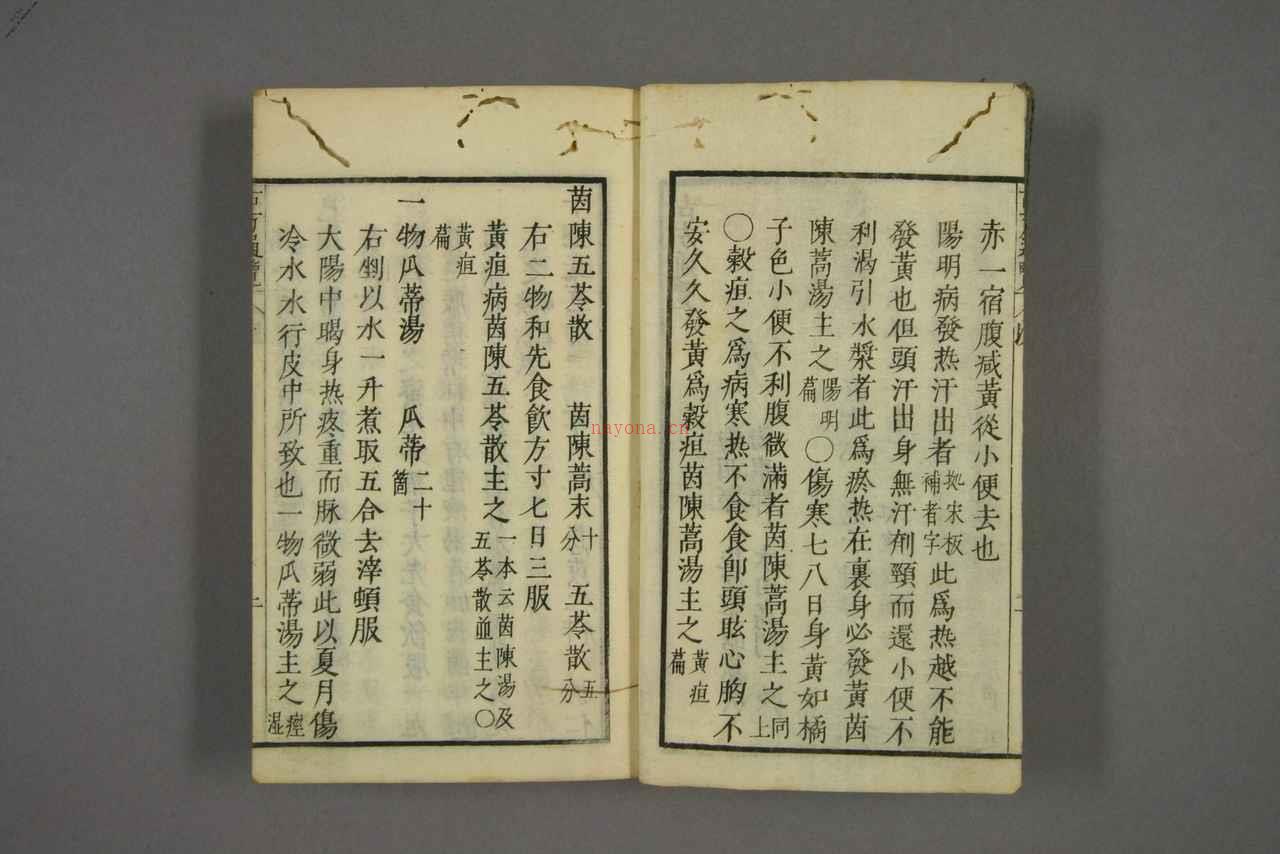 赤一宿腹减黃從小便去也
陽明病發热汗出者拠宋板補者字此爲热越不能
發黃也但頭汗出身無汗剤頸而還小便不
利渴引水漿者此爲瘀热在裏身必發黃茵
陳蒿湯主之陽明篇○傷寒七八日身黃如橘
子色小便不利腹微滿者茵陳蒿湯主之同上
○穀疸之爲病寒热不食食卽頭眩心胸不
安久久發黃爲穀疸茵陳蒿湯主之黃疸篇
茵陳五苓散 茵陳蒿末十分 五苓散五分
右二物和先食飮方寸七日三服
黃疸病茵陳五苓散主之一本云茵陳湯及五苓散並主之○
黃疸篇
一物瓜蒂湯 瓜蒂二十箇
右剉以水一升煮取五合去滓頓服
大陽中暍身热疼重而脉微弱此以夏月傷
冷水水行皮中所致也一物瓜蒂湯主之痙湿
nayona.cn